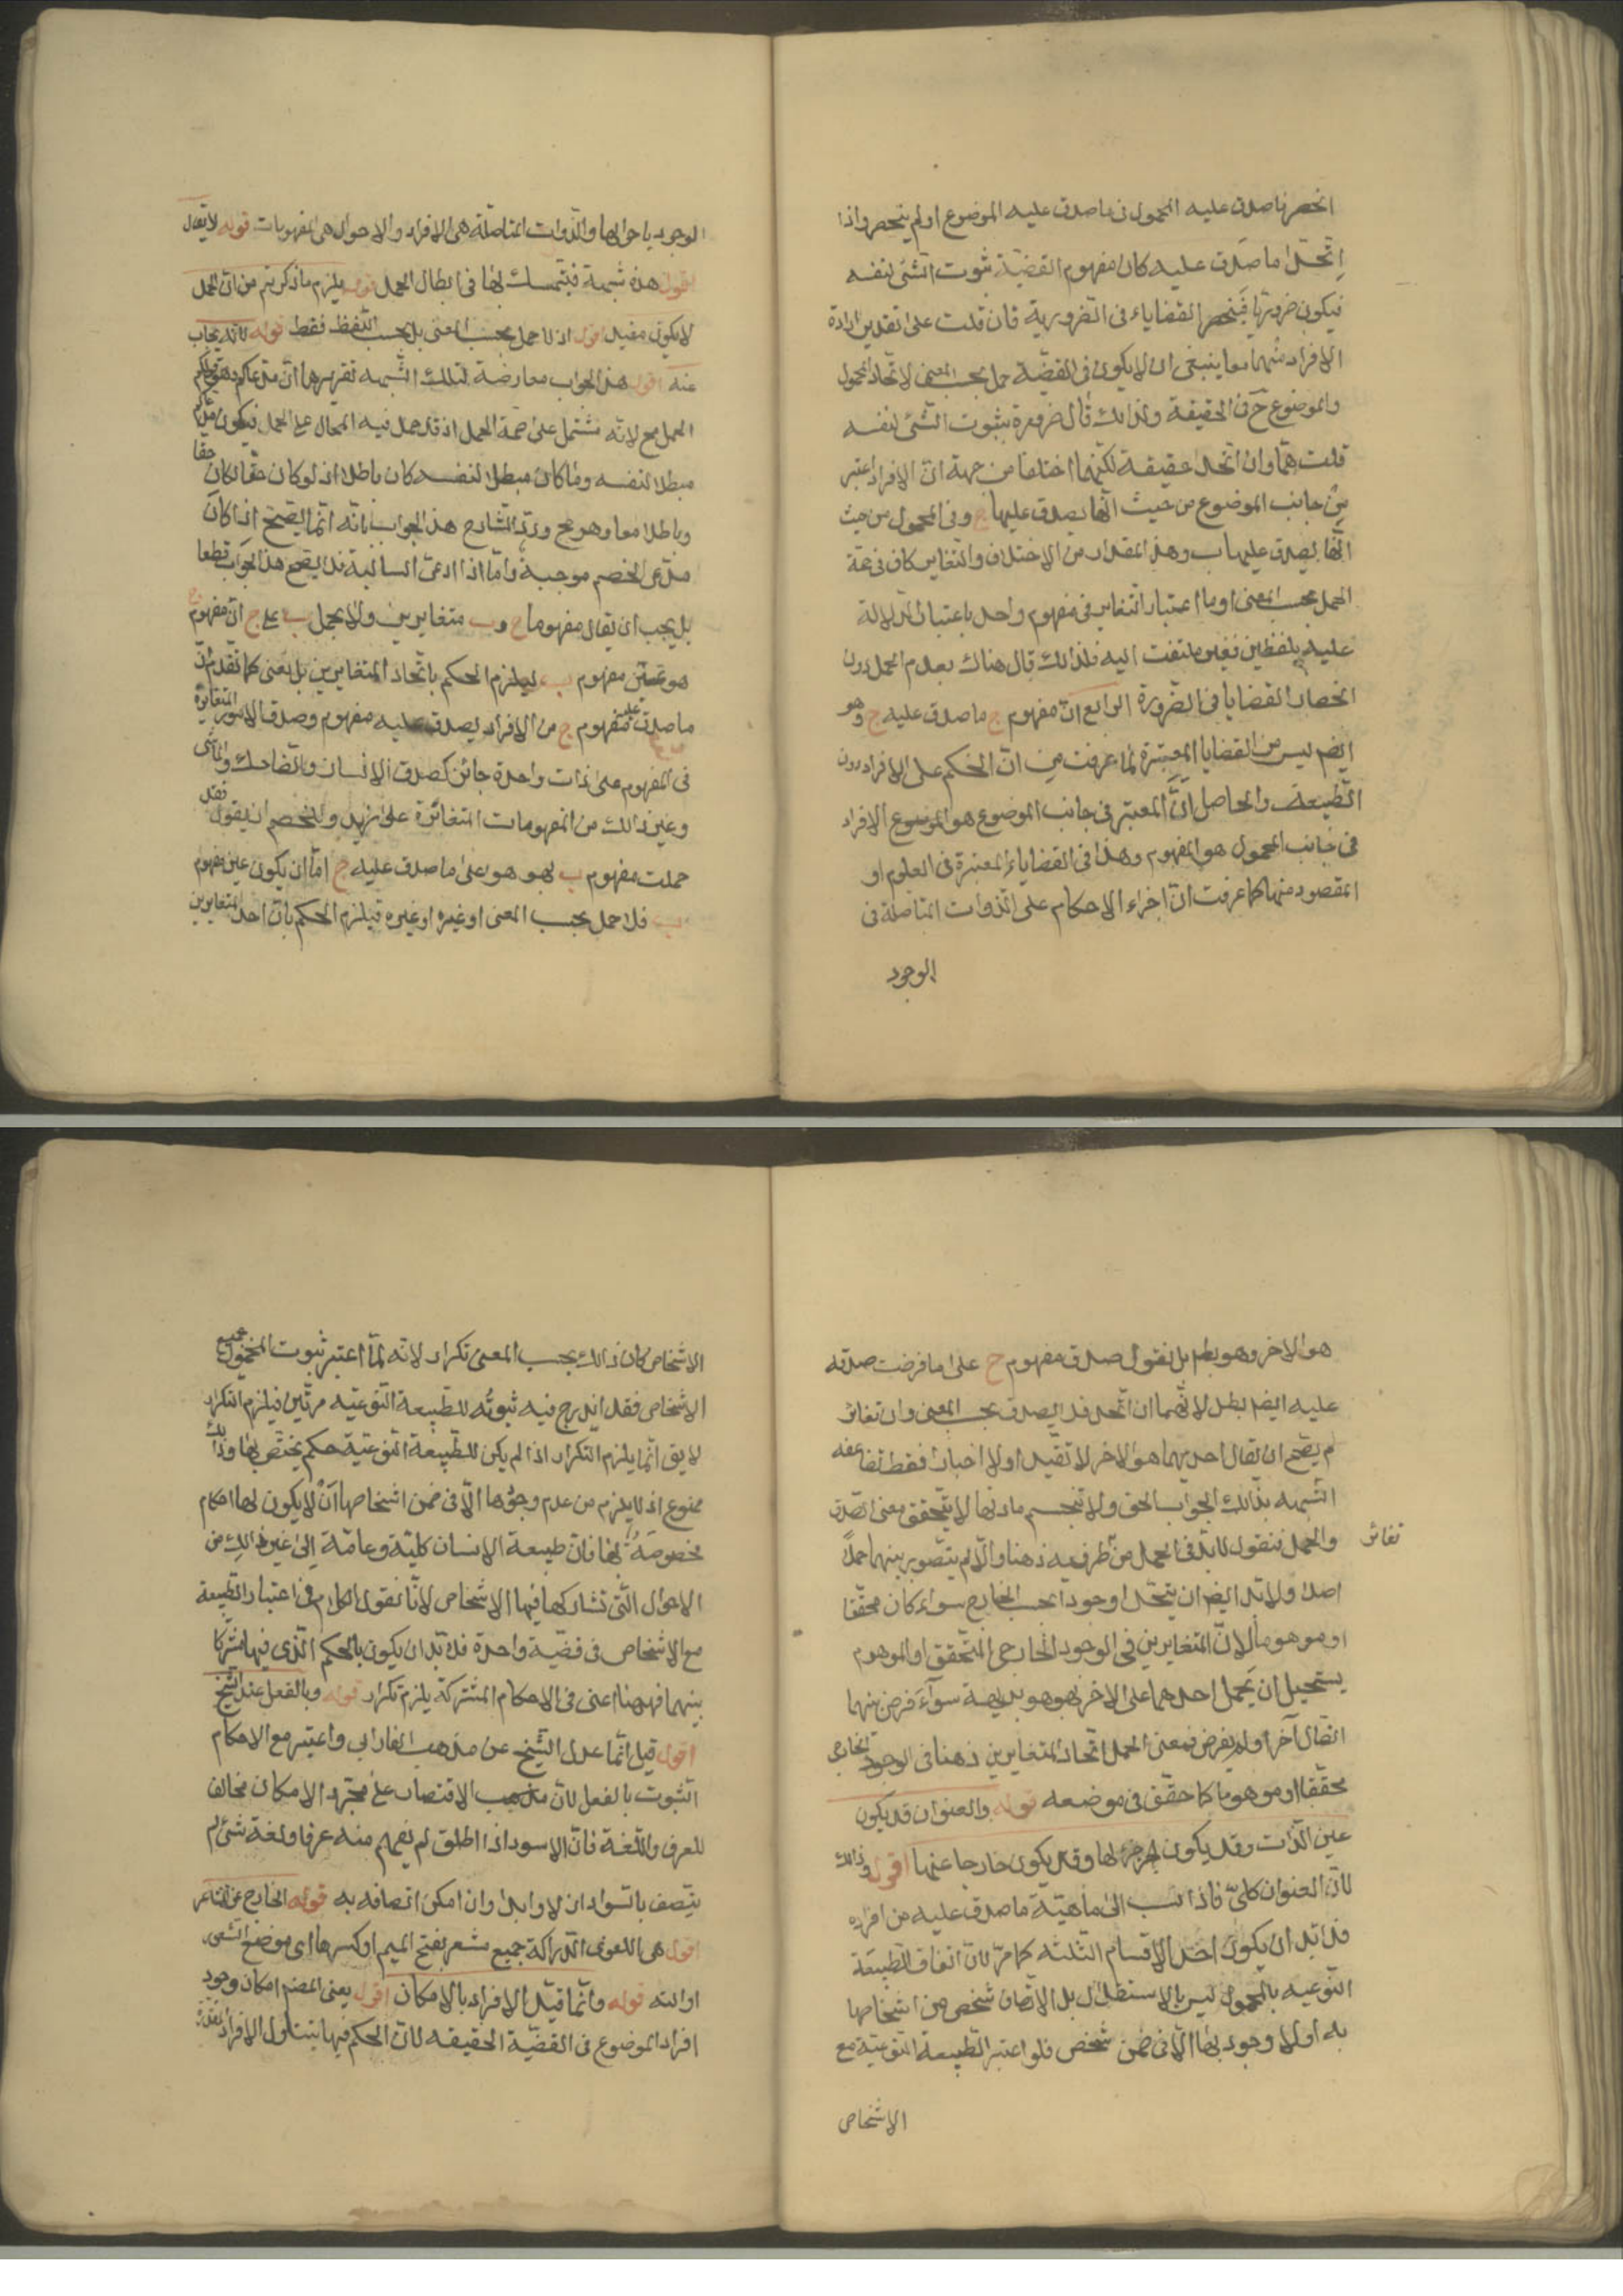 انحصر ما صدق عليه المحمول فى ما صدق عليه الموضوع او لم ينحصر واذا
اتحد ما صدق عليه كان مفهوم القضية ثبوت الشئ لنفسه
فيكون ضروريا فينحصر القضاياء فى الضرورية فان قلت على تقدير ارادة
الافراد منهما معا ينبغى ان لا يكون فى القضية حمل بحسب المعنى لاتحاد المحمول
والموضوع ح فى الحقيقة ولذلك قال ضرورة ثبوت الشئ لنفسه
قلت هما وان اتحدا حقيقة لكنهما اختلفا من جهة ان الافراد اعتبر
من جانب الموضوع من حيث انها يصدق عليها ج وفى المحمول من حيث
انها يصدق عليها ب وهذا المقدار من الاختلاف والتغاير كاف فى صحة
الحمل بحسب المعنى واما اعتبار التغاير فى مفهوم واحد باعتبار الدلالة
عليه بلفظين فغير ملتفت اليه فلذلك قال هناك بعدم الحمل دون
انحصار القضايا فى الضرورة الرابع ان مفهوم ج ما صدق عليه ج وهو
ايضم ليس من القضايا المعتبرة لما عرفت من ان الحكم على الافراد دون
الطبيعة والحاصل ان المعتبر فى جانب الموضوع هو الافراد
فى جانب المحمول هو المفهوم وهذا فى القضاياء المعتبرة فى العلوم او
المقصود منها كما عرفت ان اجراء الاحكام على الذوات المتاصلة فى
الوجود
الوجود باحوالها والذوات المتاصلة هى الافراد والاحوال هى المفهومات قوله لا يقال
اقول هذه شبهة فيتمسك بها فى ابطال الحمل قوله يلزم ما ذكرتم من ان الحمل
لا يكون مفيدا اقول اذ لا حمل بحسب المعنى بل بحسب اللفظ فقط قوله لانه يجاب
عنه اقول هذا الجواب معارضة لتلك الشبهة تقريرها ان مدعاكم وهو قولكم
الحمل مح لانه يشتمل على صحة الحمل اذ قد حمل فيه المحال على الحمل فيكون مدعاكم
مبطلا لنفسه وما كان مبطلا لنفسه كان باطلا اذ لو كان حقا لكان حقا
وباطلا معا وهو مح ورد الشارح هذا الجواب بانه انما يصح اذا كان
مدعى الخصم موجبة واما اذا ادعى السالبة فلا يصح هذا الجواب قطعا
بل يجب ان يقال مفهوما ج وب متغايرين ولا يحمل ب على ج ان مفهوم ج
هو عين مفهوم ب ليلزم الحكم باتحاد المتغايرين بل يعنى كما تقدم ان
ما صدق عليه مفهوم ج من الافراد يصدق عليه مفهوم وصدق الامور المتغايرة
فى المفهوم على ذات واحدة جائز كصدق الانسان والضاحك والماشى
وغير ذلك من المفهومات المتغايرة على زيد وللخصم ان يقول فقد
حملت مفهوم ب بهو هو على ما صدق عليه ج اما ان يكون عين مفهوم
ب فلا حمل بحسب المعنى او غيره فيلزم الحكم بان احد المتغايرين
هو الاخر وهو بط بل نقول صدق مفهوم ج على ما فرضت صدقه
عليه ايضم بطل لانهما ان اتحدا فلا يصدق بحسب المعنى وان تغاير
لم يصح ان يقال احديهما هو الاخر لا تقييدا ولا اخبارا فقط
الشبهة بذلك الجواب الحق ولا تنحسم مادتها لا يتحقق معنى الصدق
والحمل فنقول لا بد فى الحمل من طرفيه ذهنا والا لم يتصور بينهما حمل
تغاير
اصلا ولا بد ايضم ان يتحدا وجودا بحسب الخارج سواء كان محققا
او موهوما لان المتغايرين فى الوجود الخارجى المتحقق او الموهوم
يستحيل ان يحمل احدهما على الاخر بهو هو بديهة سواء فرض بينهما
اتصال آخر اولم يفرض فمعنى الحمل اتحاد المتغايرين ذهنا فى الوجود الخارجى
محققا او موهوما كما حقق فى موضعه قوله والعنوان قد يكون
عين الذات وقد يكون جزء لها وقد يكون خارجا عنها اقول وذلك
لان العنوان كلى فاذا نسب الى ماهية ما صدق عليه من افراده
فلا بد ان يكون احد الاقسام الثلثه كما مر لان اتصاف الطبيعة
النوعيه بالمحمول ليس بالاستقلال بل الاتصاف شخص من اشخاصها
به اولا لا وجود لها الا فى ضمن شخص فلو اعتبر الطبيعة النوعية مع
الاشخاص
الاشخاص كان ذلك بحسب المعنى تكرار لانه لما اعتبر ثبوت المحمول لجميع
الاشخاص فقد اندرج فيه ثبوته للطبيعة النوعيه مرتين فيلزم التكرار
لا يق انما يلزم التكرار اذا لم يكن للطبيعة النوعية حكم يختص بها وذلك
ممنوع اذ لا يلزم من عدم وجودها الا فى ضمن اشخاصها ان لا يكون لها احكام
مخصوصة بها فان طبيعة الانسان كلية وعامة الى غير ذلك من
الاحوال التى تشاركها فيها الاشخاص لانا نقول الكلام فى اعتبار الطبيعة
مع الاشخاص فى قضية واحدة فلا بد ان يكون بالحكم الذى فيها مشتركا
بينهما فههنا اعنى فى الاحكام المشتركة يلزم تكرار قوله وبالفعل عند الشيخ
اقول قيل انما عدل الشيخ عن مذهب الفارابى واعتبر مع الامكان
الثبوت بالفعل لان مذهب الاقتصار على مجرد الامكان مخالف
للعرف واللغة فان الاسود اذا اطلق لم يفهم منه عرفا ولغة شئ لم
يتصف بالسواد ازلا وابدا وان امكن اتصافه به قوله الخارج عن المشاعر
اقول هى القوى الدراكة جميع مشعر بفتح الميم او كسرها اى موضع الشعور
او الته قوله وانما قيد الافراد بالامكان اقول يعنى المصم امكان وجود
افراد الموضوع فى القضية الحقيقه لان الحكم فيها يتناول الافراد المقدرة